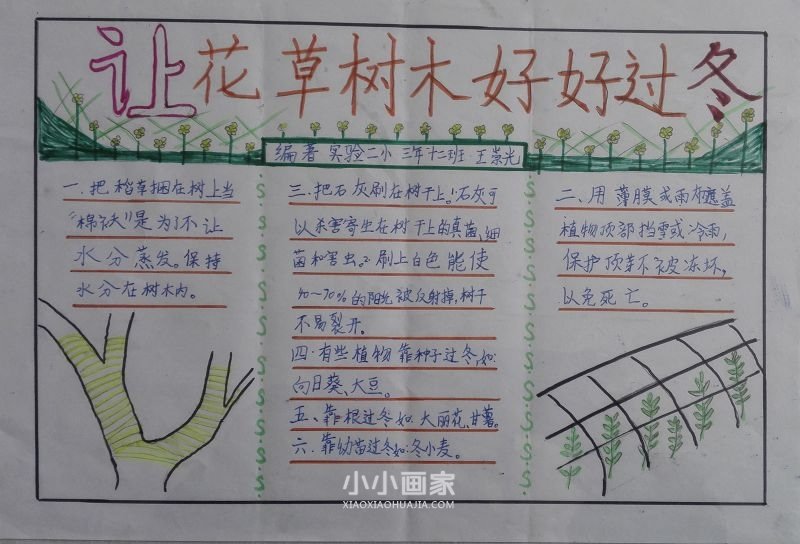 让花草树木好好过冬
编著 实验二小 三年十二班 王崇光
一.把稻草捆在树上当
"棉袄"是为了不让
水分蒸发。保持
水分在树木内。
三.把石灰刷在树干上。1.石灰可
以杀害寄生在树干上的真菌,细
菌和害虫。2.刷上白色能使
40~70%的阳光被反射掉,树干
不易裂开。
四.有些植物靠种子过冬,如:
向日葵、大豆。
五、靠根过冬如:大丽花,甘薯。
六.靠幼苗过冬如:冬小麦。
二.用薄膜或雨布遮盖
植物顶部挡雪或冷雨,
保护顶芽不被冻坏,
以免死亡。
小小画家
XIAOXIAOHUAJIA.COM